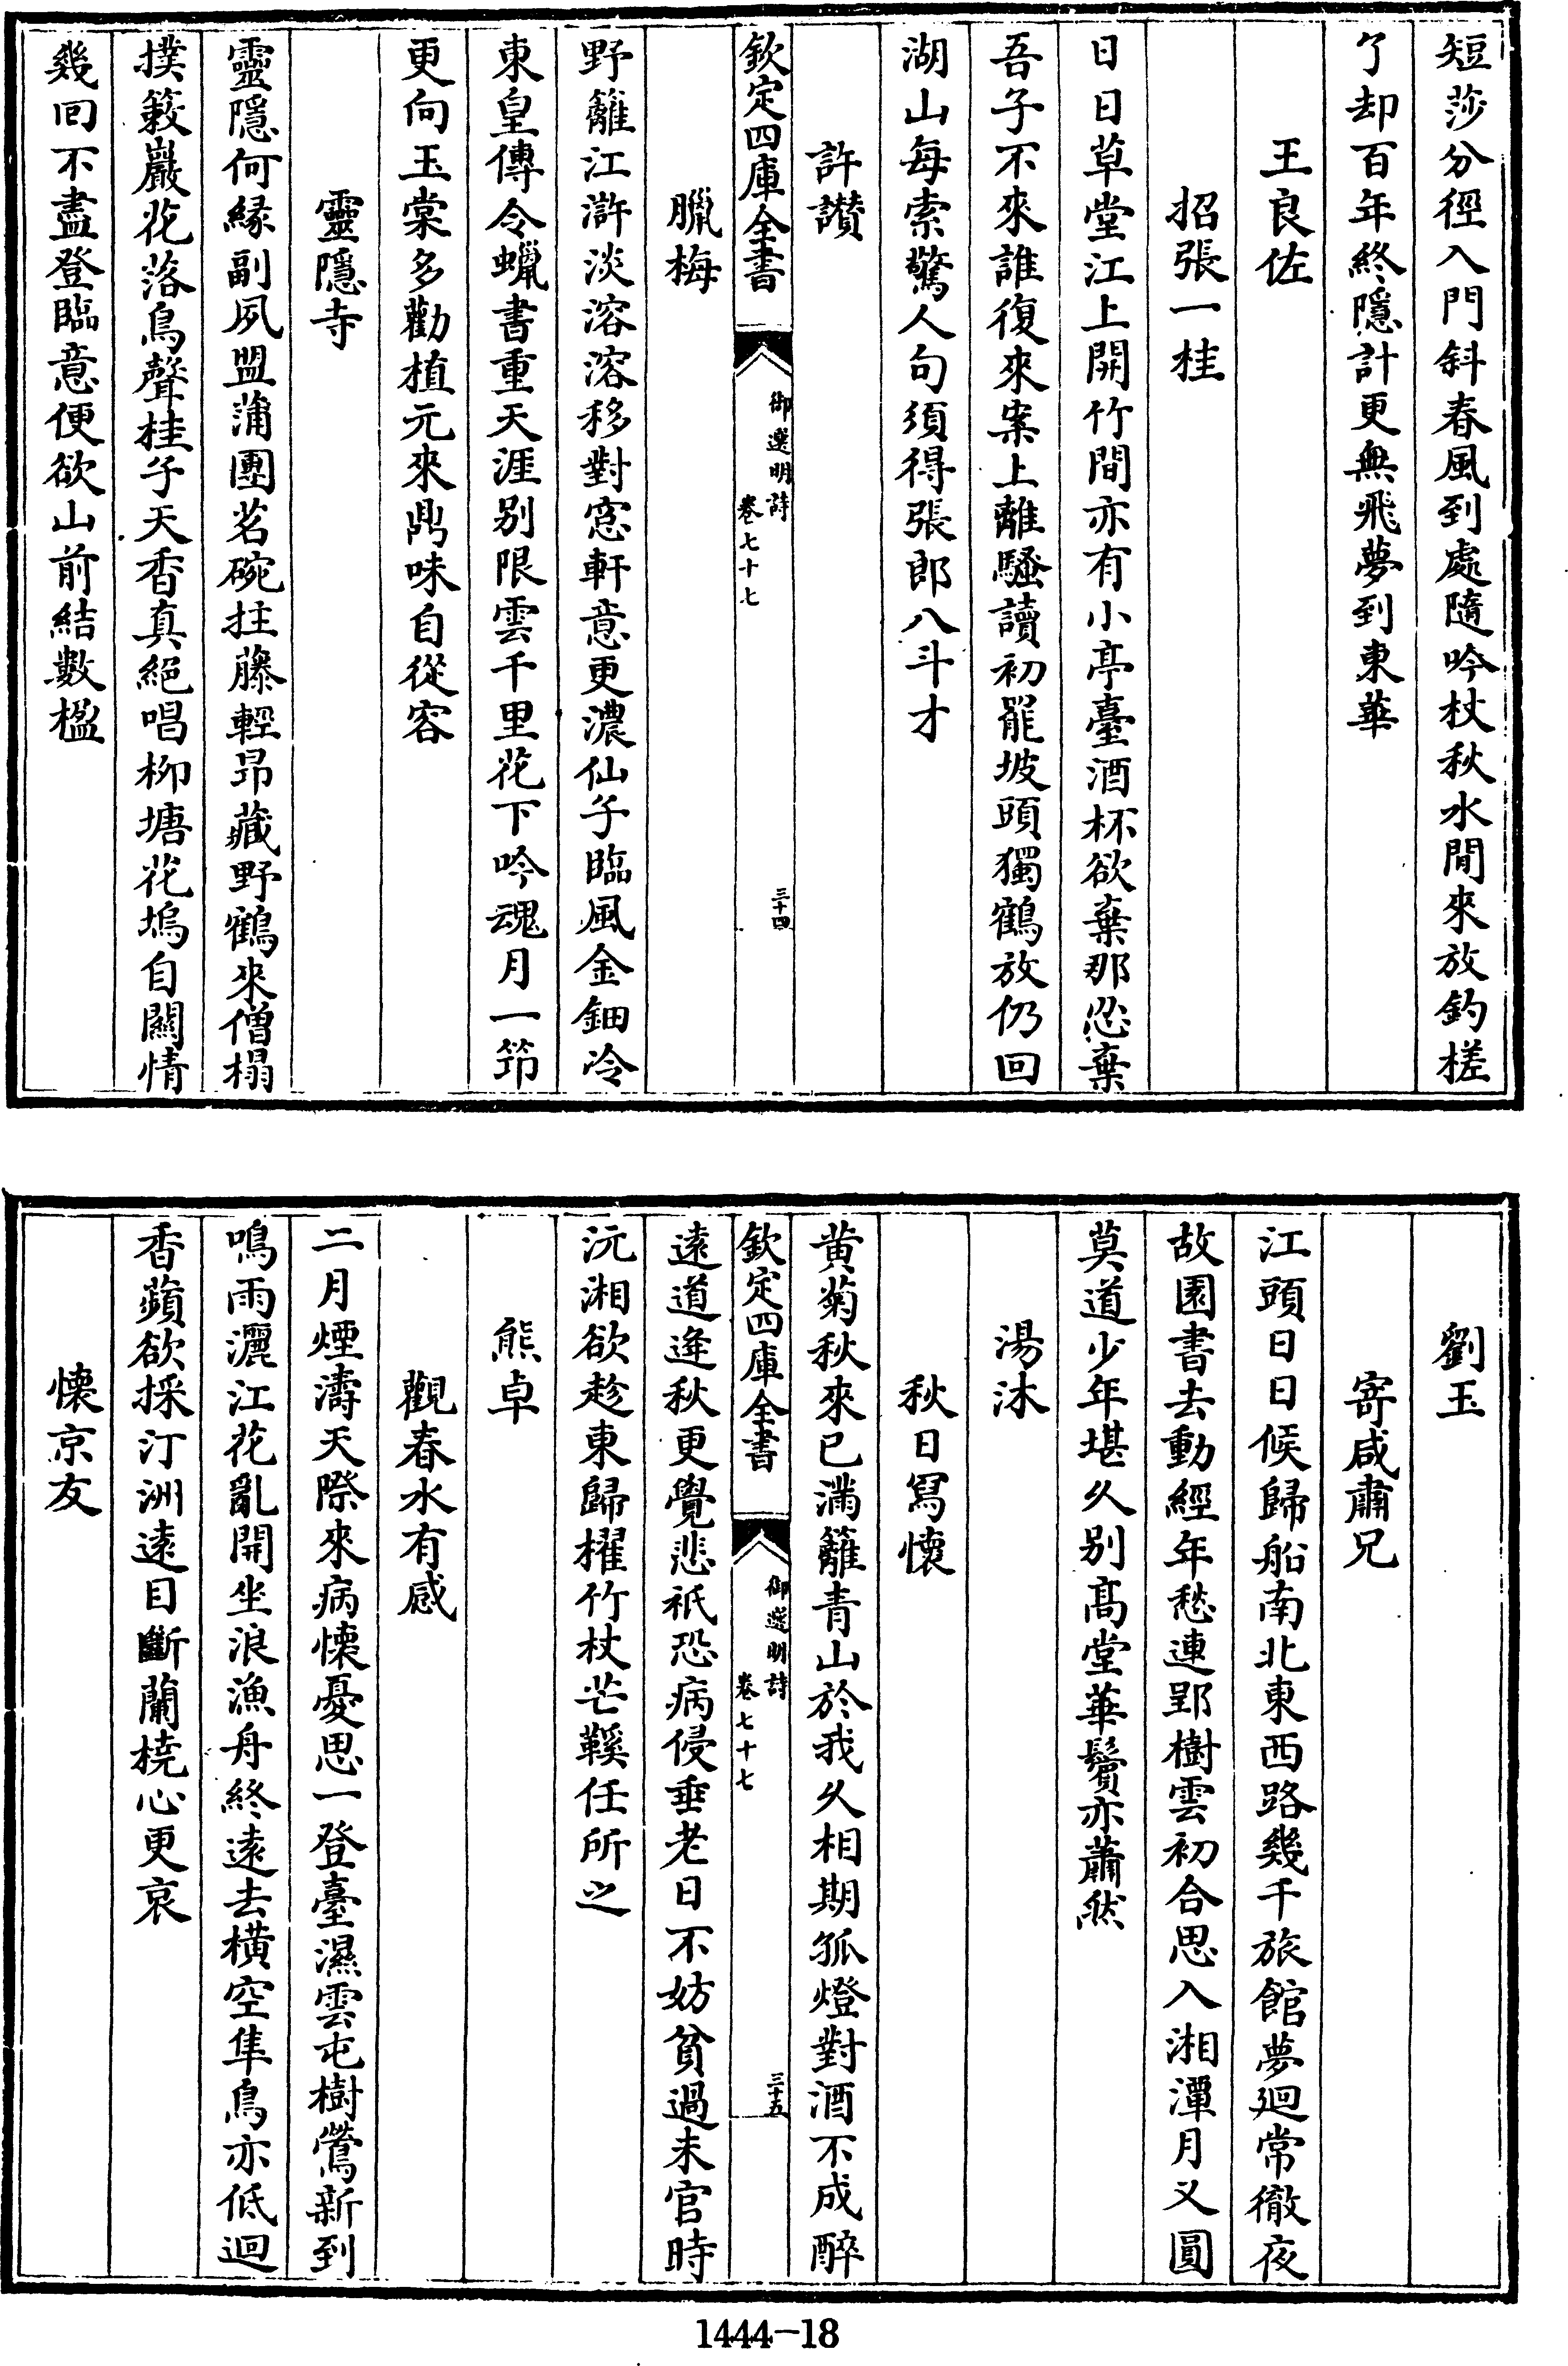 短莎分徑入門斜春風到處隨吟杖秋水閒來放釣槎
了却百年終隱計更無飛夢到東華
王良佐
招張一桂
日日草堂江上開竹間亦有小亭臺酒杯欲棄那忍棄
吾子不來誰復來案上離騷讀初罷坡頭獨鶴放仍回
湖山每索驚人句須得張郎八斗才
許讃
欽定四庫全書
御選明詩
卷七十七
三十四
臘梅
野籬江滸淡溶溶移對窓軒意更濃仙子臨風金鈿冷
東皇傳令蠟書重天涯别限雲千里花下吟魂月一筇
更向玉棠多勸植元來鼎味自從容
靈隱寺
靈隱何緣副夙盟蒲團茗碗拄藤輕昂藏野鶴來僧榻
撲簌巖花落鳥聲桂子天香真絕唱柳塘花塢自關情
幾回不盡登臨意便欲山前結數楹
劉玉
寄咸肅兄
江頭日日候歸船南北東西路幾千旅館夢廻常徹夜
故園書去動經年愁連郢樹雲初合思入湘潭月又圓
莫道少年堪久别高堂華鬢亦蕭然
湯沐
秋日冩懷
黄菊秋來已滿籬青山於我久相期孤燈對酒不成醉
欽定四庫全書
御選明詩
卷七十七
三十五
遠道逢秋更覺悲祇恐病侵垂老日不妨貧過未官時
沅湘欲趁東歸櫂竹杖芒鞵任所之
熊卓
觀春水有感
二月煙濤天際來病懐憂思一登臺濕雲屯樹鶯新到
鳴雨灑江花亂開坐浪漁舟終遠去橫空隼鳥亦低迴
香蘋欲採汀洲遠目斷蘭橈心更哀
懐京友
1444-18